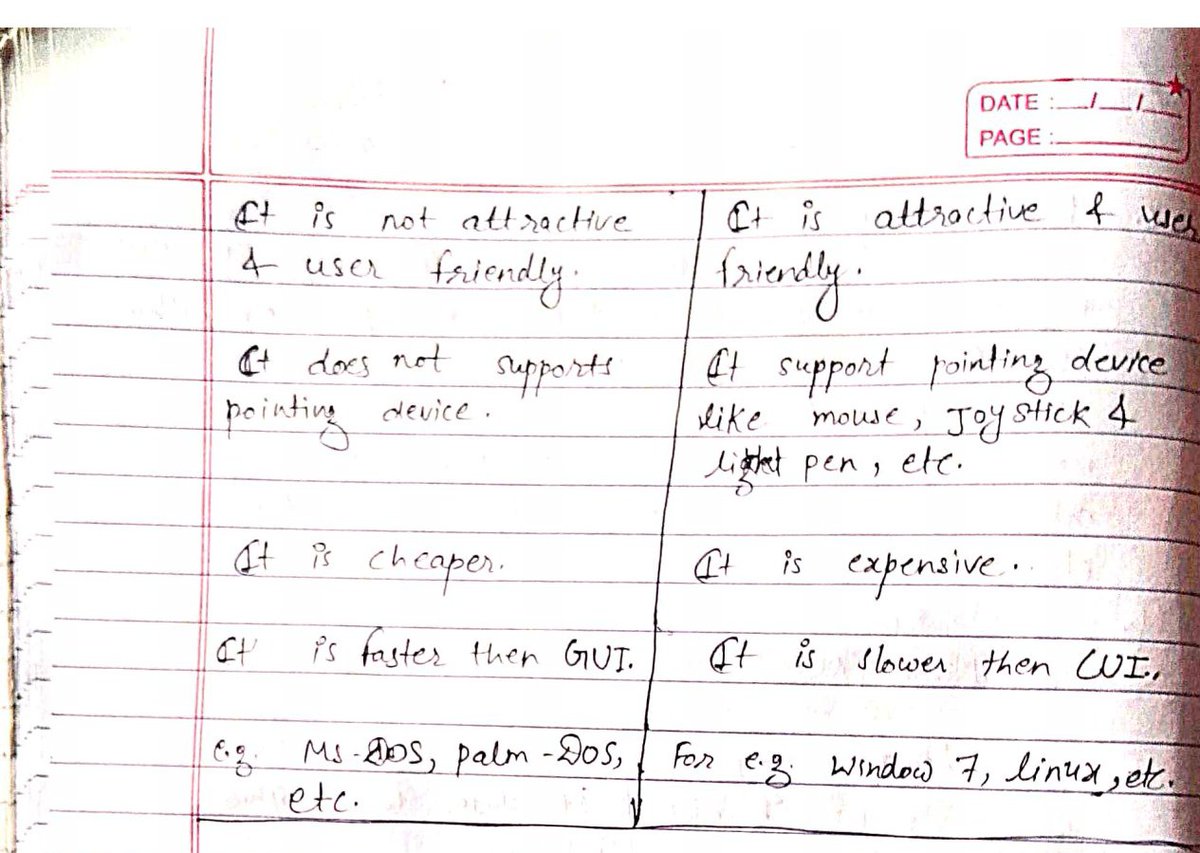 DATE :__/__/__
PAGE :______
It is not attractive
& user friendly.
It is attractive & user
friendly.
It does not supports
pointing device.
It support pointing device
like mouse, Joystick &
light pen, etc.
It is cheaper.
It is expensive.
It is faster then GUI.
It is slower then CUI.
e.g. Ms-DOS, palm-DOS,
etc.
For e.g. window 7, linux, etc.